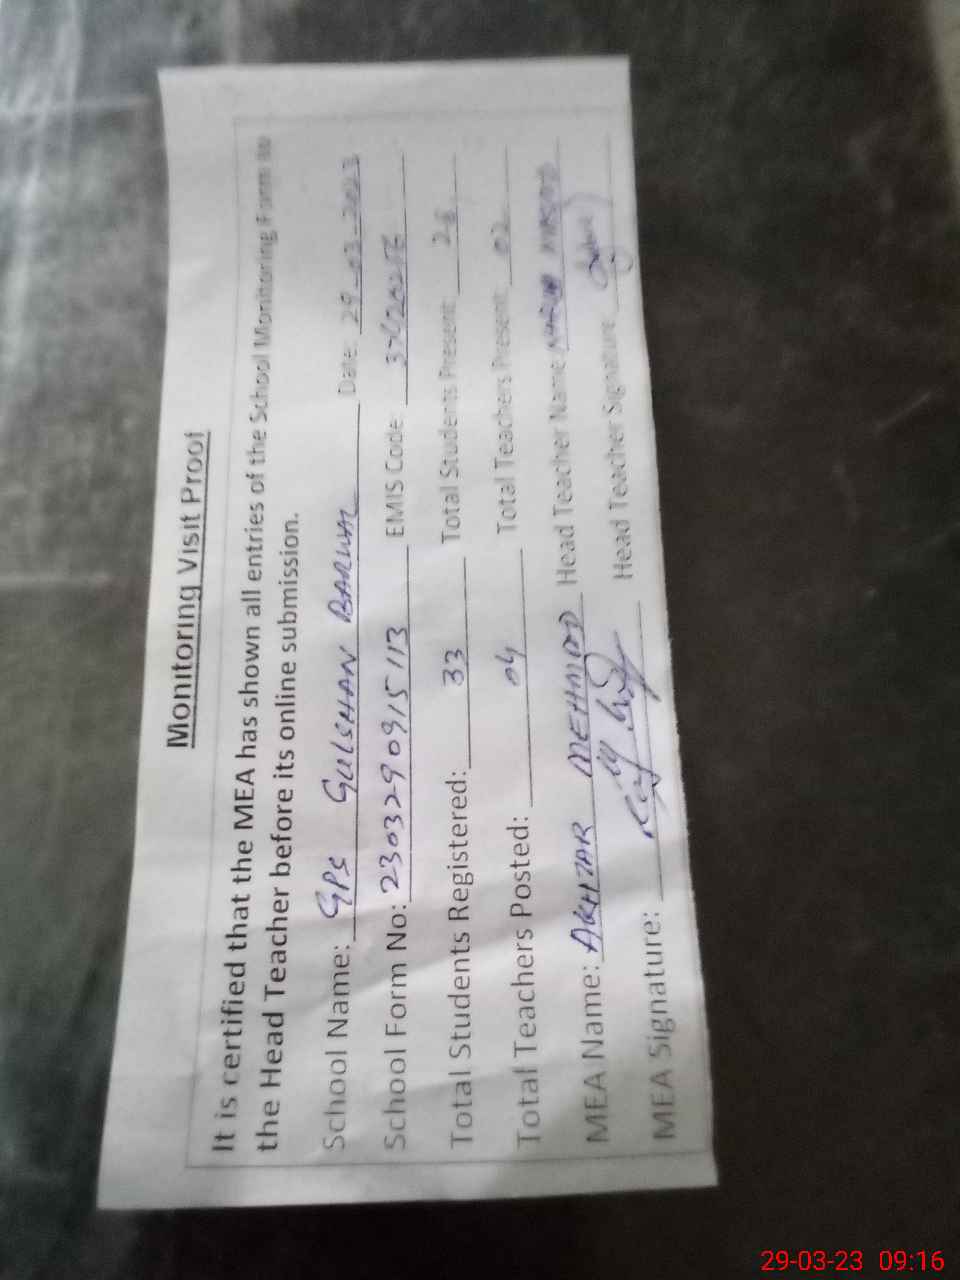 Monitoring Visit Proof
It is certified that the MEA has shown all entries of the School Monitoring Form to
the Head Teacher before its online submission.
School Name: GPS GULSHAN BARWAL Date: 29-03-2023
School Form No: 2303290915113 EMIS Code:
Total Students Registered: 33 Total Students Present: 26
Total Teachers Posted: 04 Total Teachers Present: 02
MEA Name: AKHTAR MEHMOOD Head Teacher Name
MEA Signature: Head Teacher Signature
29-03-23 09:16